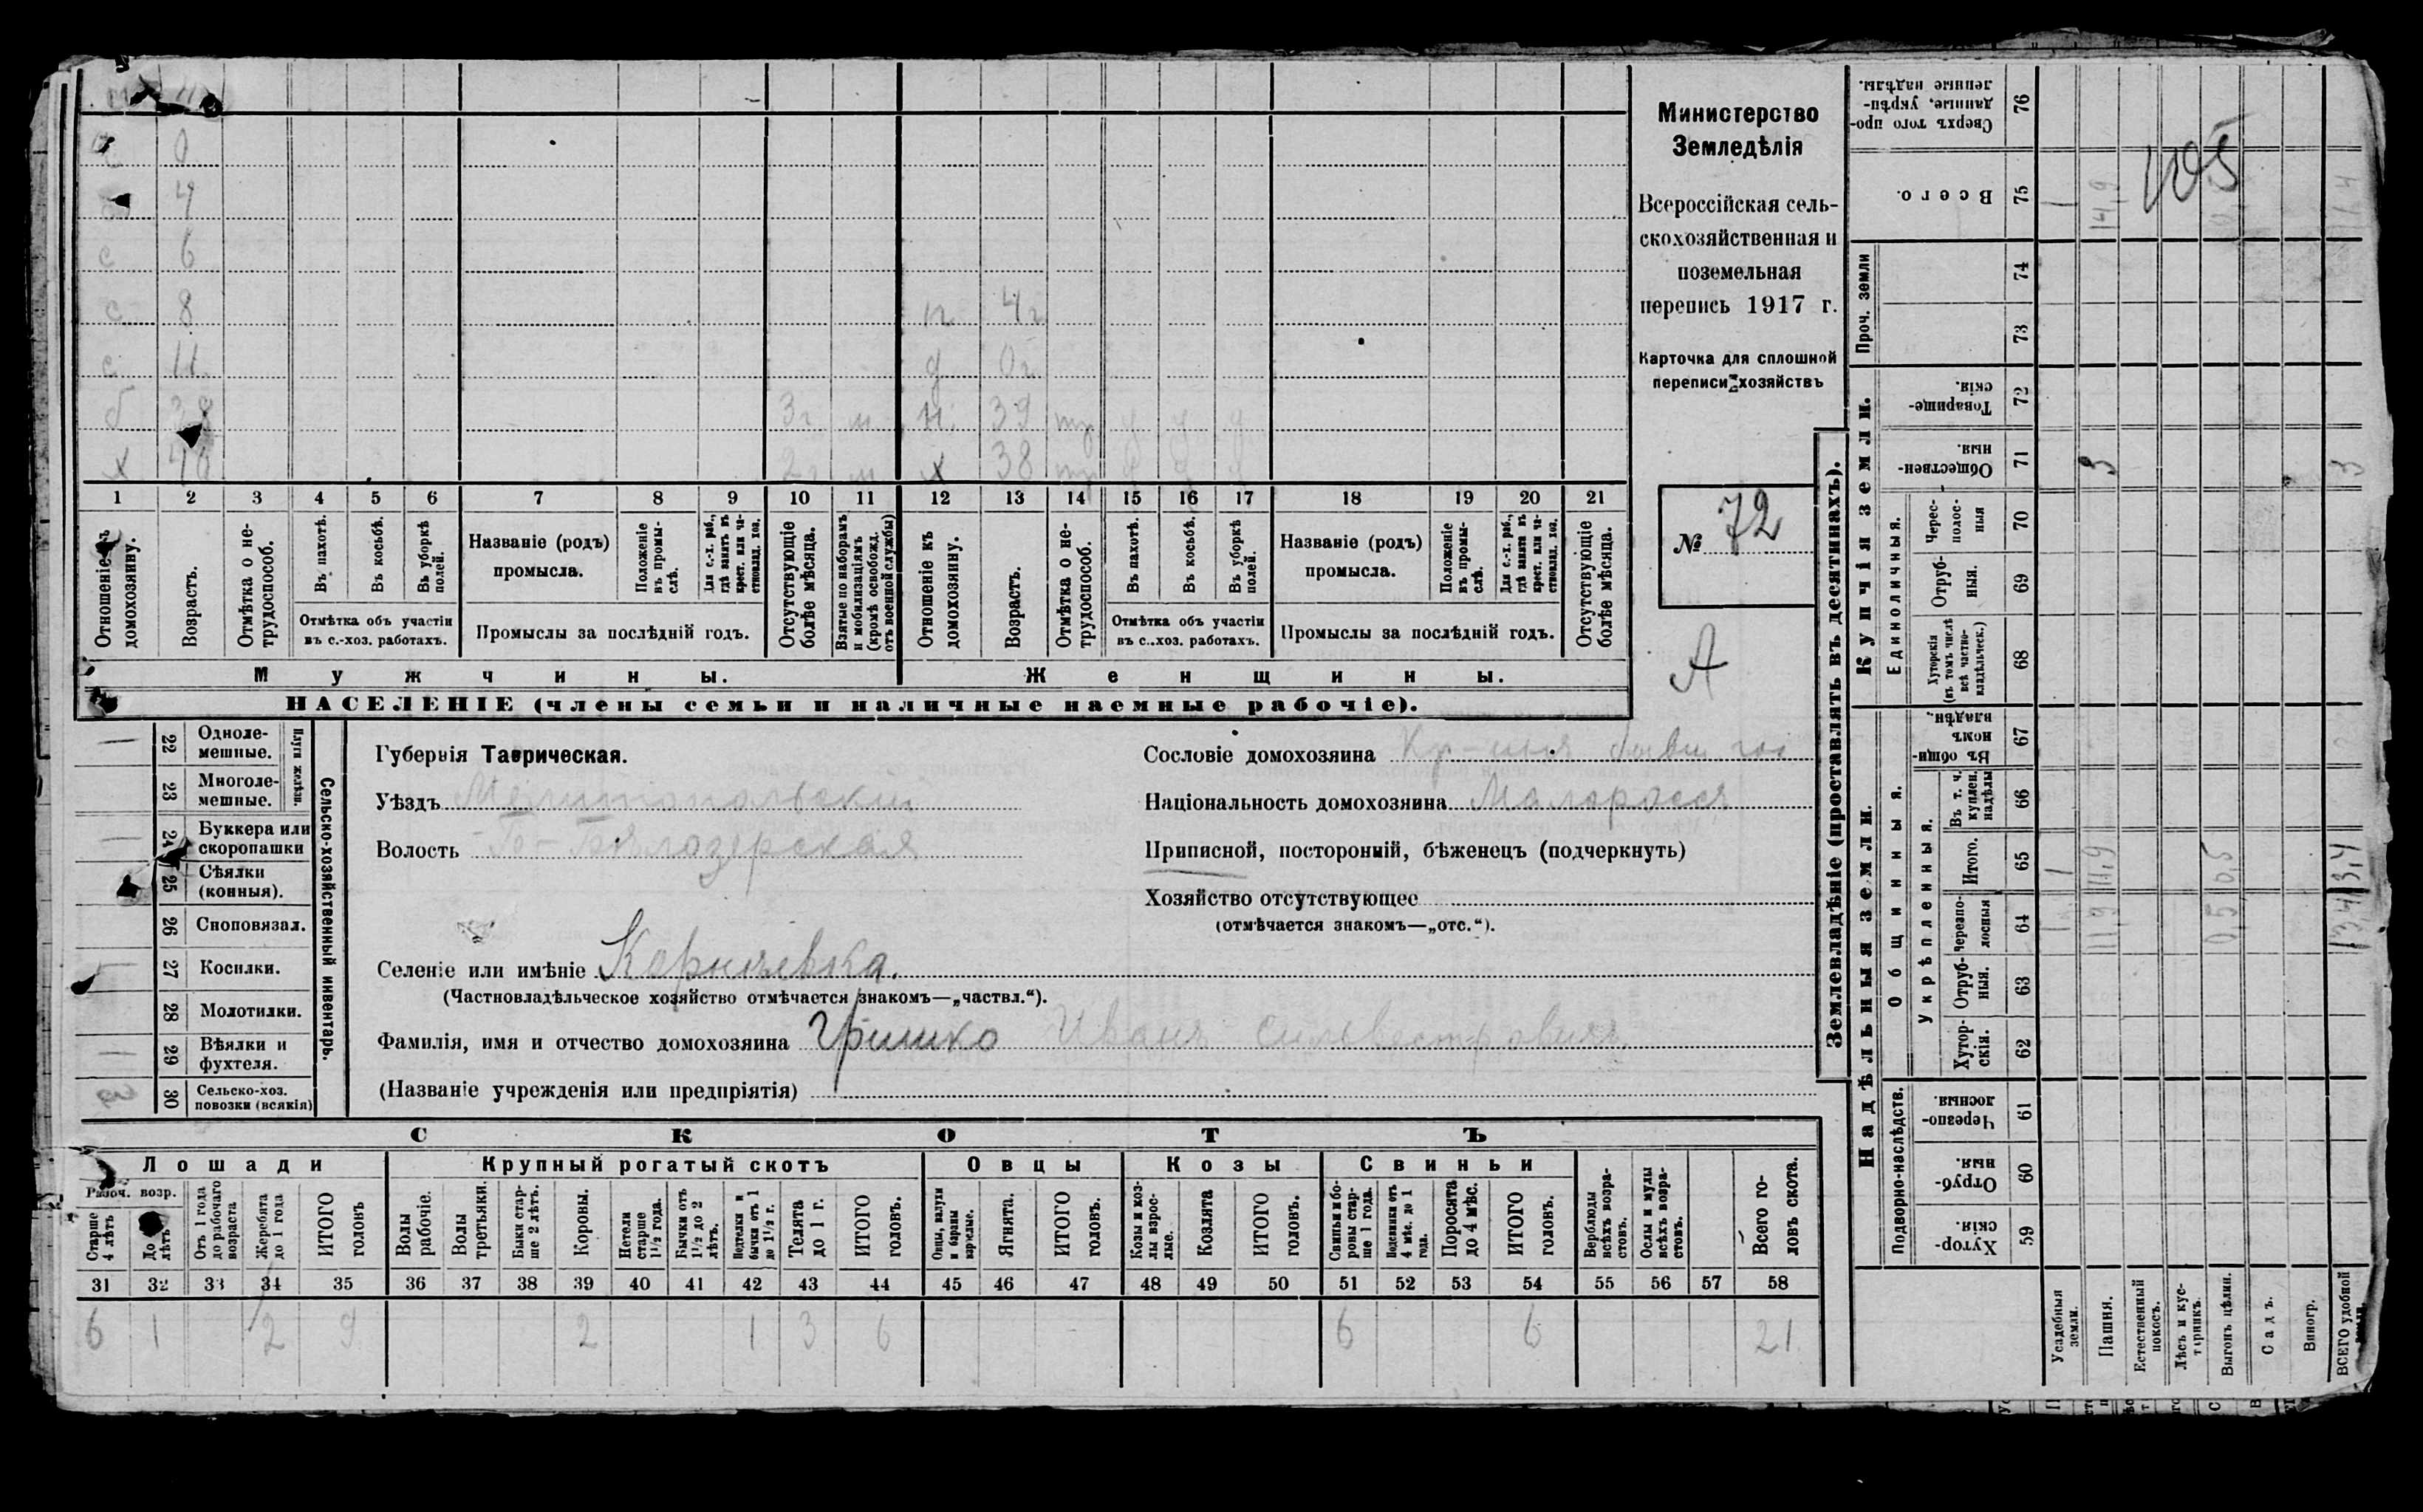 Министерство
Земледѣлія
Всероссійская сель-
скохозяйственная и
поземельная
перепись 1917 г.
Карточка для сплошной
переписи хозяйствъ
№ 72
А
0
4
с 6
с 8
н 4г
с 11
д 0г
б 38 3г м н. 39
х 40 2г м х 38
1 2 3 4 5 6 7 8 9 10 11 12 13 14 15 16 17 18 19 20 21
Отношеніе къ домохозяину.
Возрастъ.
Отмѣтка о не-трудоспособ.
Въ пахотѣ.
Въ косьбѣ.
Въ уборкѣ полей.
Отмѣтка объ участіи въ с.-хоз. работахъ.
Названіе (родъ) промысла.
Положеніе въ промы-слѣ.
Для с.-х. раб., гдѣ занятъ въ крест. или ча-стновлад. хоз.
Промыслы за послѣдній годъ.
Отсутствующіе болѣе мѣсяца.
Взятые по наборамъ и мобилизаціямъ (кромѣ освобожд. отъ военной службы)
Отношеніе къ домохозяину.
Возрастъ.
Отмѣтка о не-трудоспособ.
Въ пахотѣ.
Въ косьбѣ.
Въ уборкѣ полей.
Отмѣтка объ участіи въ с.-хоз. работахъ.
Названіе (родъ) промысла.
Положеніе въ промы-слѣ.
Для с.-х. раб., гдѣ занята въ крест. или ча-стновлад. хоз.
Промыслы за послѣдній годъ.
Отсутствующіе болѣе мѣсяца.
Мужчины. Женщины.
НАСЕЛЕНІЕ (члены семьи и наличные наемные рабочіе).
Сельско-хозяйственный инвентарь.
Плуги желѣзн.
22 Одноле-мешные.
23 Многоле-мешные.
24 Буккера или скоропашки
25 Сѣялки (конныя).
26 Сноповязал.
27 Косилки.
28 Молотилки.
29 Вѣялки и фухтеля.
30 Сельско-хоз. повозки (всякія) 3
Губернія Таврическая.
Уѣздъ Мелитопольскій
Волость Бѣлозерская
Селеніе или имѣніе Корнѣевка.
(Частновладѣльческое хозяйство отмѣчается знакомъ—„частвл.“).
Фамилія, имя и отчество домохозяина Гришко Иванъ Сильвестровичъ
(Названіе учрежденія или предпріятія)
Сословіе домохозяина
Національность домохозяина Малоросс
Приписной, посторонній, бѣженецъ (подчеркнуть)
Хозяйство отсутствующее
(отмѣчается знакомъ—„отс.“).
СКОТЪ
Лошади Крупный рогатый скотъ Овцы Козы Свиньи
Рабоч. возр.
Старше 4 лѣтъ
До лѣтъ
Отъ 1 года до рабочаго возраста
Жеребята до 1 года
ИТОГО головъ
Волы рабочіе.
Волы третьяки.
Быки стар-ше 2 лѣтъ.
Коровы.
Нетели старше 1½ года.
Бычки отъ 1½ до 2 лѣтъ.
Нетелки и бычки отъ 1 до 1½ г.
Телята до 1 г.
ИТОГО головъ.
Овцы, валухи и бараны взрослые.
Ягнята.
ИТОГО головъ.
Козы и коз-лы взрос-лые.
Козлята
ИТОГО головъ.
Свиньи и бо-ровы стар-ше 1 года.
Подсвинки отъ 4 мѣс. до 1 года.
Поросята до 4 мѣс.
ИТОГО головъ.
Верблюды всѣхъ возра-стовъ.
Ослы и мулы всѣхъ возра-стовъ.
Всего го-ловъ скота.
31 32 33 34 35 36 37 38 39 40 41 42 43 44 45 46 47 48 49 50 51 52 53 54 55 56 57 58
6 1 2 9 2 1 3 6 6 6 21
Землевладѣніе (проставлять въ десятинахъ).
Купчія земли.
Надѣльныя земли.
76 Сверхъ того про-данные, укрѣп-ленные надѣлы.
75 Всего. 1 14,9
105
Проч. земли
74
73
72 Товарище-скія.
71 Обществен-ныя 3 3
Единоличныя.
70 Черес-полос-ныя
69 Отруб-ныя.
68 Хуторскія (въ томъ числѣ всѣ частно-владѣльческ.)
Общинныя.
67 Въ общи-номъ владѣн.
Укрѣпленныя.
66 Въ т. ч. куплен. надѣлы
65 Итого. 1 11,9 0,5 13,4
64 Черезпо-лосныя 1 11,9 0,5 13,4
63 Отруб-ныя.
62 Хутор-скія.
Подворно-наслѣдств.
61 Черезпо-лосныя.
60 Отруб-ныя.
59 Хутор-скія.
Усадебныя земли.
Пашня.
Естественный покосъ.
Лѣсъ и кус-тарникъ.
Выгонъ цѣлин.
Садъ.
Виногр.
ВСЕГО удобной земли.